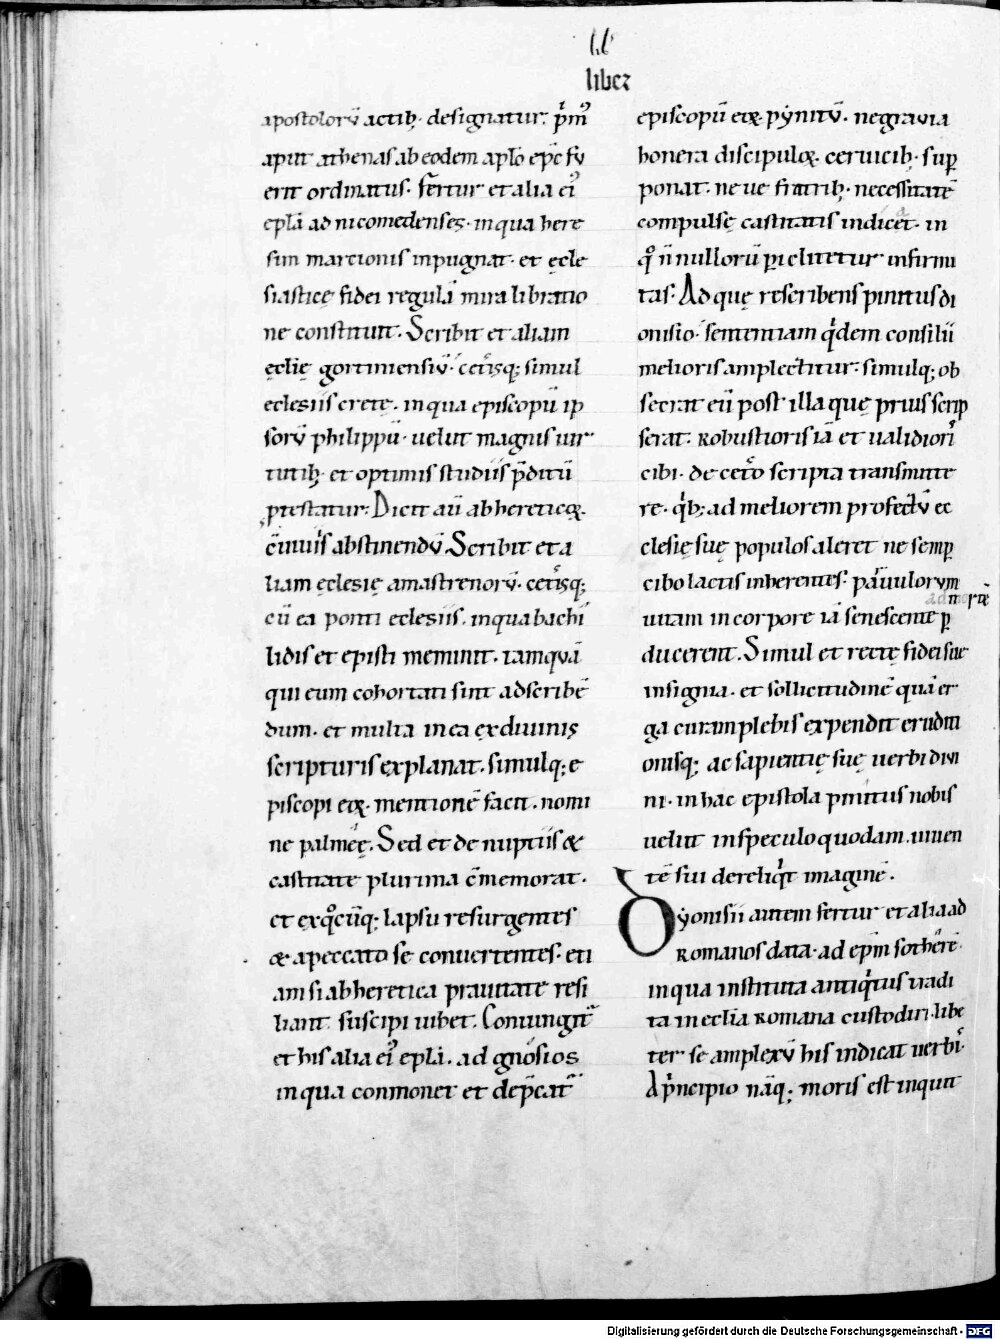 liber
apostolorū actib; designatur. p̄m͛
aput athenas ab eodem aplo epc fu
erit ordinatus. fertur et alia ei͛
epl̄a ad nicomedenses. in qua here
sim marcionis inpugnat. et ęcle
siasticę fidei regulā mira libratio
ne constituit. Scribit et aliam
ęcl̄ię gortiniensiū. cet͛isq; simul
eclesiis cretę. in qua episcopū ip
sorū philippū. uelut magnis uir
tutib; et optimis studiis p̄ditū
p̨testatur. Dicit aū ab hereticoꝝ
c̄iuiis abstinendū. Scribit et a
liam ęclesię amastrenorū. cet͛isq;
cū ea ponti eclesiis. in qua bachi
lidis et episti meminit. tamquā
qui eum cohortati sint ad scribē
dum. et multa in ea ex diuinis
scripturis explanat. simulq; e
piscopi eoꝝ. mentionē facit. nomi
ne palmęę. Sed et de nuptiis &
castitate plurima c̄memorat.
et ex q͛cūq; lapsu resurgentes
& a peccato se conuertentes. eti
am si ab heretica prauitate resi
liant suscipi iubet. Coniungit͛
et his alia ei͛ epl̄a. ad gnosios
in qua conmonet et dep̄cat͛
episcopū eoꝝ pẏnitū. ne grauia
honera discipuloꝝ. ceruicib; sup̱
ponat. ne ue fratrib; necessitatē
compulsę castitatis indicet. in
q͛ n̄nullorū p̱iclitetur infirmi
tas. Ad quę rescribens pinitus di
onisio. sententiam q͛dem consilii
melioris amplectitur. simulq; ob
secrat eū post illa quę prius scrip
serat. robustioris iā et ualidiori͛
cibi. de cet͛o scripta transmitte
re. q͛b; ad meliorem profectū ec
clesię suę populos aleret ne semp̱
cibo lactis inherentes. paruulorum
ad mortē
uitam in corpore iā senescente p̱
ducerent. Simul et rectę fidei suę
insignia. et sollicitudinē quā er
ga curam plebis expendit eruditi
onisq; ac sapientię suę uerbi diui
ni. in hac epistola pinitus nobis
uelut in speculo quodam. uiuen
tē sui dereliq͛t imaginē.
Dẏonisii autem fertur et alia ad
Romanos data. ad ep̄m sotherē.
in qua instituta antiq͛tus tradi
ta in ecl̄ia romana custodiri. libē
ter se amplexū his indicat uerbi͛.
A p͛ncipio nāq; moris est inquit
Digitalisierung gefördert durch die Deutsche Forschungsgemeinschaft - DFG